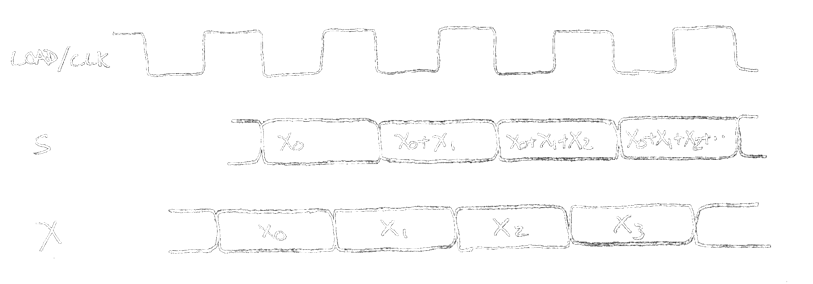 LOAD/CLK
S X0 X0+X1 X0+X1+X2 X0+X1+X2+...
X X0 X1 X2 X3